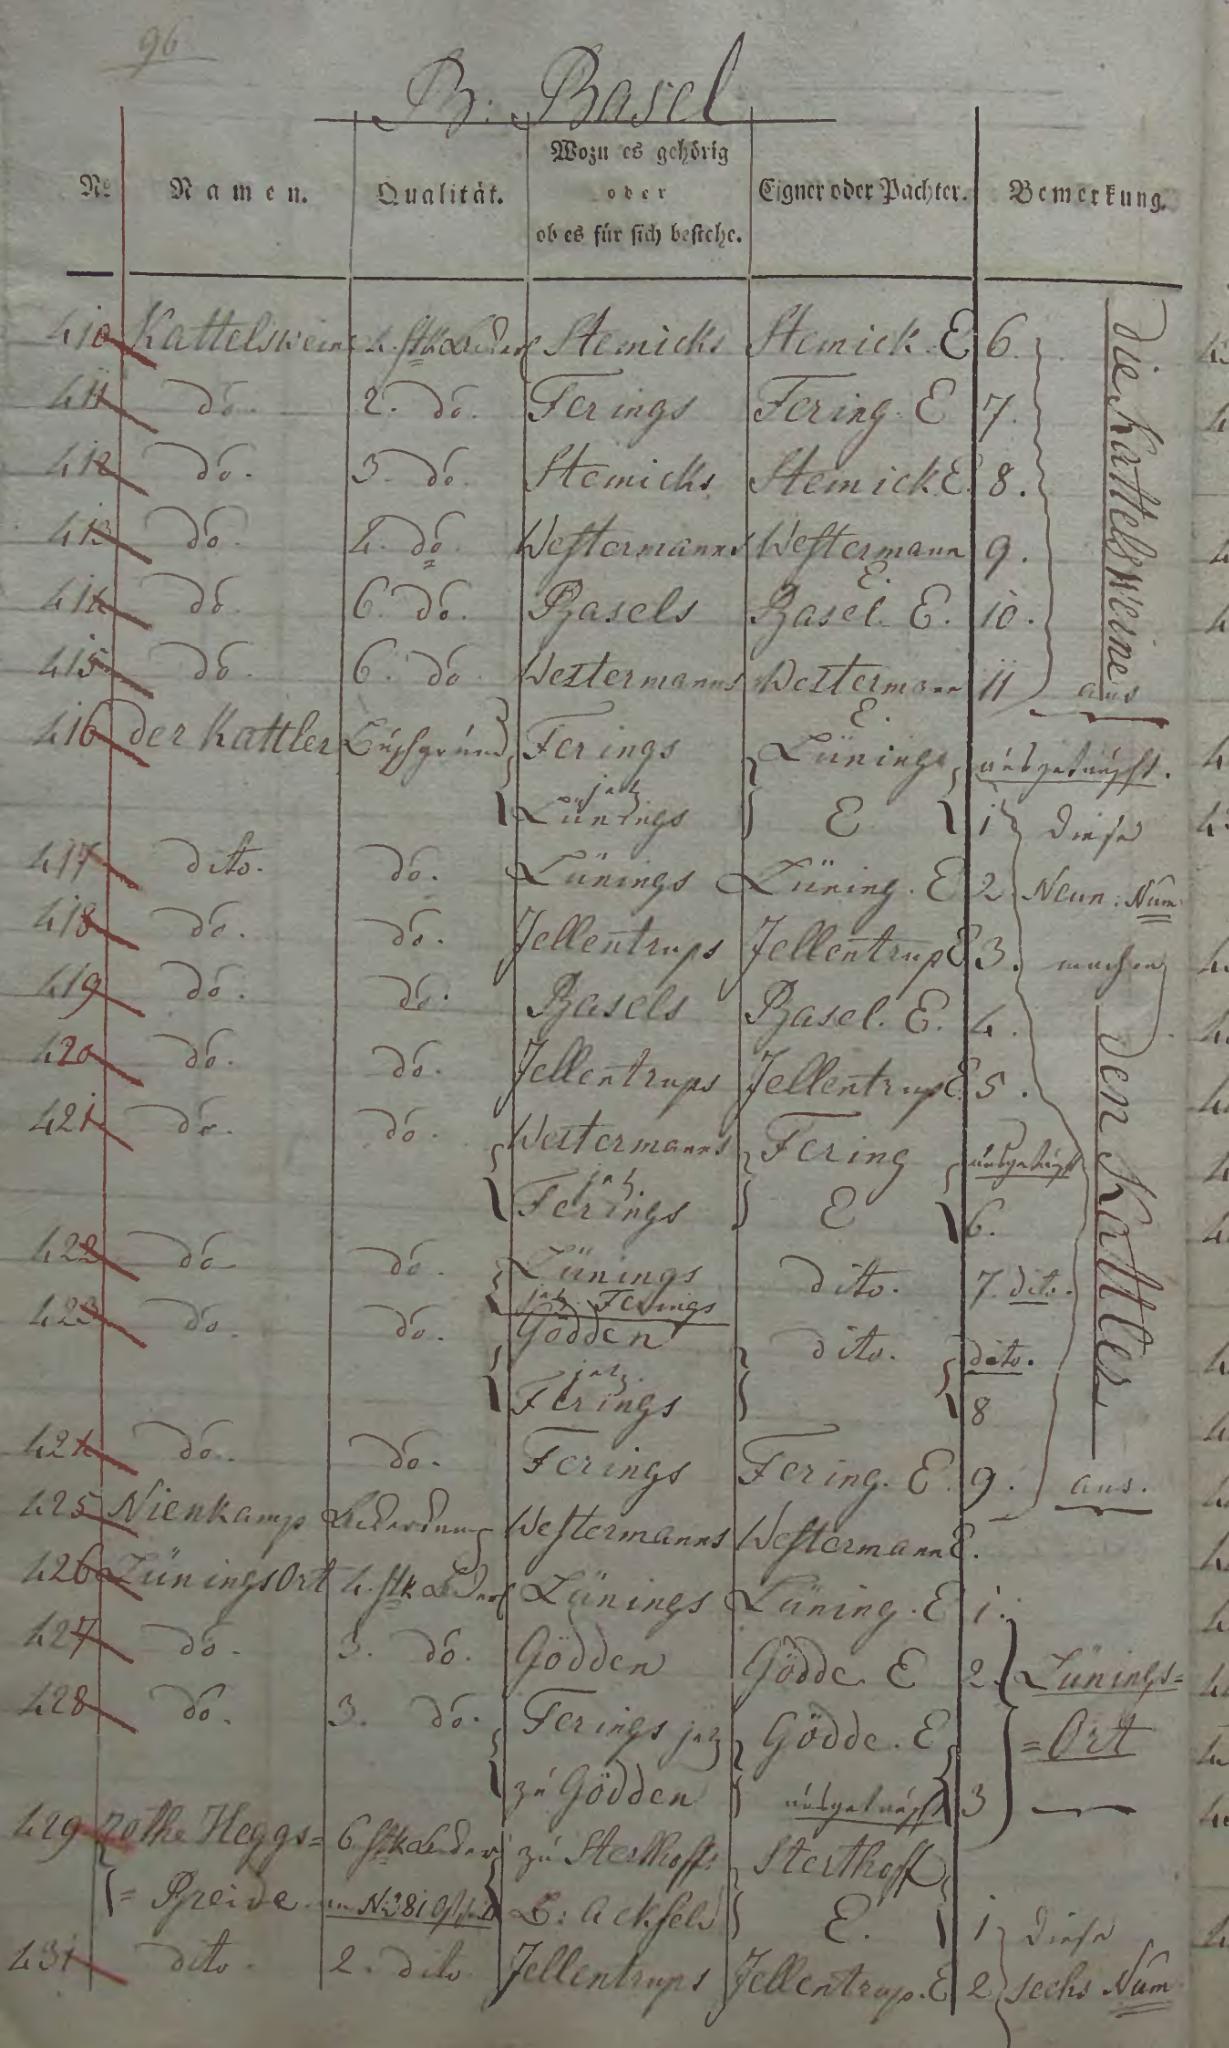 96
B: Basel
No Namen. Qualität. Wozu es gehörig oder ob es für sich bestehe. Eigner oder Pachter. Bemerkung.
410 Kattelsweine 4. Stk Ackerl Stemicks Stemick. E 6.
411 do. 2. do. Ferings Fering. E 7.
412 do. 3. do. Stemicks Stemick E. 8.
413 do. 4. do. Westermanns Westermann E. 9.
414 do. 6. do. Basels Basel. E. 10.
415 do. 6. do. Westermanns Westermann E. 11
die Kattelsweine aus
416 der Kattler Büschgründ Ferings Lünings ausgetauscht.
jetz Lünings E 1 diese
417 dito. do. Lünings Lüning. E 2. Neun: Num
418 do. do. Jellentrups Jellentrup E 3. machen
419 do. do. Basels Basel. E. 4.
420 do. do. Jellentrups Jellentrup E. 5.
421 do. do. Westermanns Fering ausgetauscht
jetz Ferings E 6.
422 do do. Lünings dito. 7. dito.
jetz Ferings
423 do. do. Gödden dito. dito.
jetz Ferings 8
424 do. do. Ferings Fering. E. 9.
den Kattler aus.
425 Nienkamp Ackerkamp Westermanns Westermann E.
426 Lünings Ort 4. Stk Ackerl Lünings Lüning. E 1.
427 do. 3. do. Gödden Gödde E 2. Lünings=
428 do. 3. do. Ferings jetz Gödde. E =Ort
zu Gödden ausgetauscht 3
429 Rothe Heggs= 6. Stk Acker zu Sterthoffs Sterthoff
=Breide. No 381 B: Ackfeld E. 1 diese
431 dito. 2. dito Jellentrups Jellentrup. E 2 sechs Num